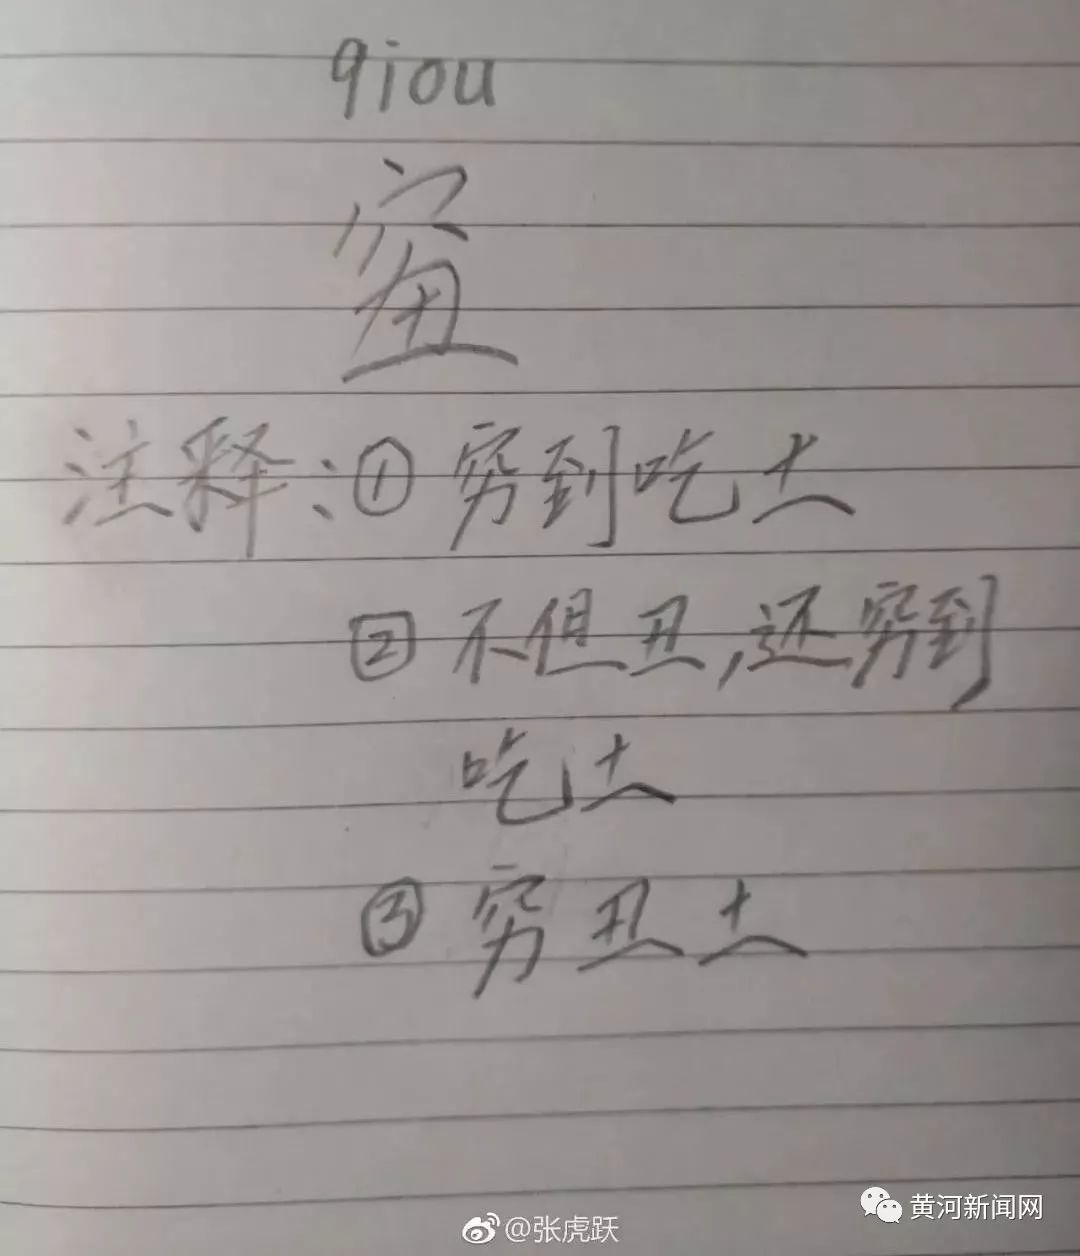 qiou
注释：① 穷到吃土
② 不但丑，还穷到
吃土
③ 穷丑土
@张虎跃
黄河新闻网